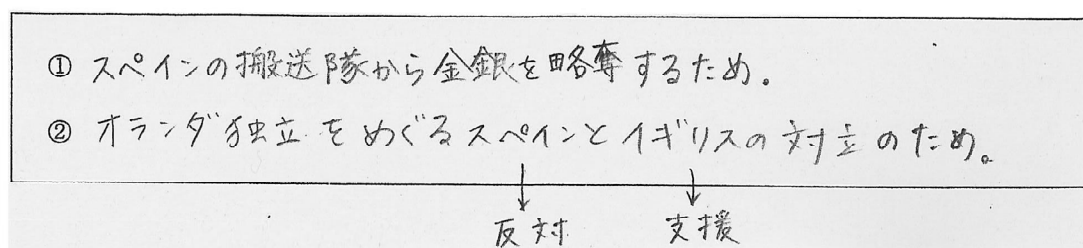 ① スペインの搬送隊から金銀を略奪するため。
② オランダ独立をめぐるスペインとイギリスの対立のため。
↓ ↓
反対 支援